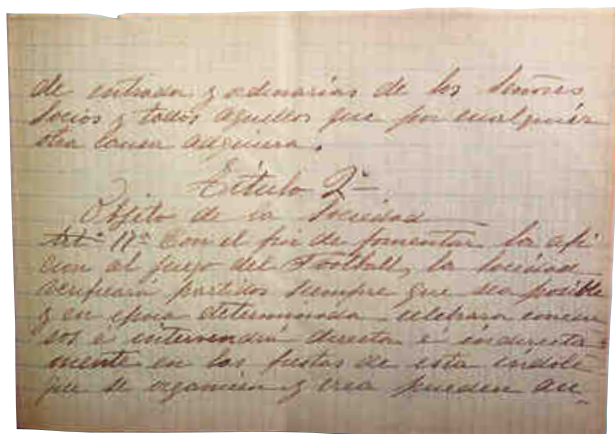 de entrada y ordinarias de los Señores
Socios y todos aquellos que por cualquier
otra causa adquiera.
Título 2º
Objeto de la Sociedad
Artº 11º Con el fin de fomentar la afi
cion al juego del Football, la Sociedad
verificará partidos siempre que sea posible
y en época determinada celebrara concur
sos é intervendrá directa é indirecta
mente en las fiestas de esta indole
que se organicen y crea pueden au_